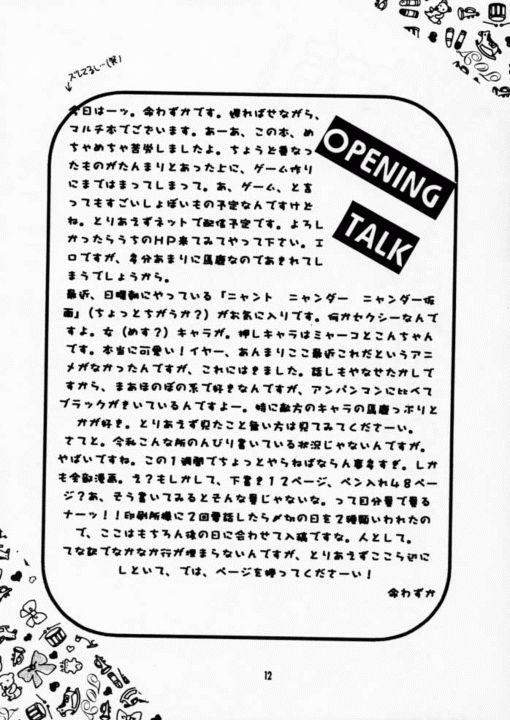 今日はーッ。命わずかです。遅ればせながら、
マルチ本でございます。あーあ、この本、め
ちゃめちゃ苦労しましたよ。ちょうど重なっ
たものがたんまりとあった上に、ゲーム作り
にまではまってしまって。あ、ゲーム、と言
ってもすごいしょぼいもの予定なんですけど
ね。とりあえずネットで配信予定です。よろし
かったらうちのHP来てみてやって下さい。エ
ロですが、多分あまりに馬鹿なのであきれてし
まうでしょうから。
OPENING
TALK
最近、日曜朝にやっている「ニャント ニャンダー ニャンダー仮
面」(ちょっとちがうか?)がお気に入りです。何かセクシーなんで
すよ。女(めす?)キャラが。押しキャラはミャーコとこんちゃん
です。本当に可愛い!イヤー、あんまりここ最近これだというアニ
メがなかったんですが、これにはきました。話しもやなせたかしで
すから、まあほのぼの系で好きなんですが、アンパンマンに比べて
ブラックがきいているんですよー。特に敵方のキャラの馬鹿っぷりと
かが好き。とりあえず見たこと無い方は見てみてくださーい。
さてと。今私こんな所のんびり書いている状況じゃないんですが。
やばいですね。この1週間でちょっとやらねばならん事多すぎ。しか
も全部漫画。え?もしかして、下書き12ページ、ペン入れ48ペー
ジ?あ、そう書いてみるとそんな量じゃないな。って十分量で量る
ナーッ!!印刷所様に2回電話したら〆切の日を2種類いわれたの
で、ここはもちろん後の日に合わせて入稿ですな。人として。
てな訳でなかなか行が埋まらないんですが、とりあえずここら辺に
しといて、では、ページを捲ってくださーい!
命わずか
12